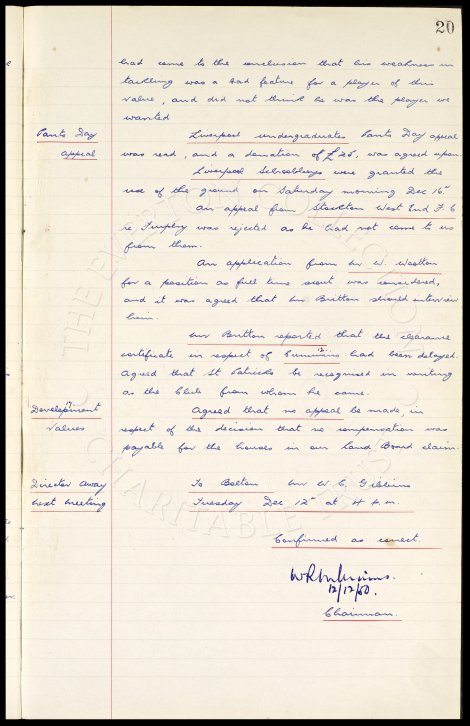 20
had come to the conclusion that his weakness in
tackling was a sad feature for a player of this
value, and did not think he was the player we
wanted
Pants Day
appeal
Liverpool undergraduates Pants Day appeal
was read, and a donation of £25. was agreed upon.
Liverpool Schoolboys were granted the
use of the ground on Saturday morning Dec 16"
An appeal from Stockton West End F.C
re, was rejected as he had not come to us
from them.
An application from Mr W. Wootton
for a position as full time scout was considered,
and it was agreed that Mr Britton should interview
him.
Mr Britton reported that the clearance
certificate in respect of Cummins had been delayed.
Agreed that St Patricks be recognised in writing
as the Club from whom he came.
Development
Values
Agreed that no appeal be made, in
respect of the decision that no compensation was
payable for the houses in our Land Board claim.
Director away
next meeting
To Bolton Mr W. C. Gibbins
Tuesday Dec 12" at 4 p.m.
Confirmed as correct.
12/12/50.
Chairman.
THE EVERTON COLLECTION
CHARITABLE TRUST